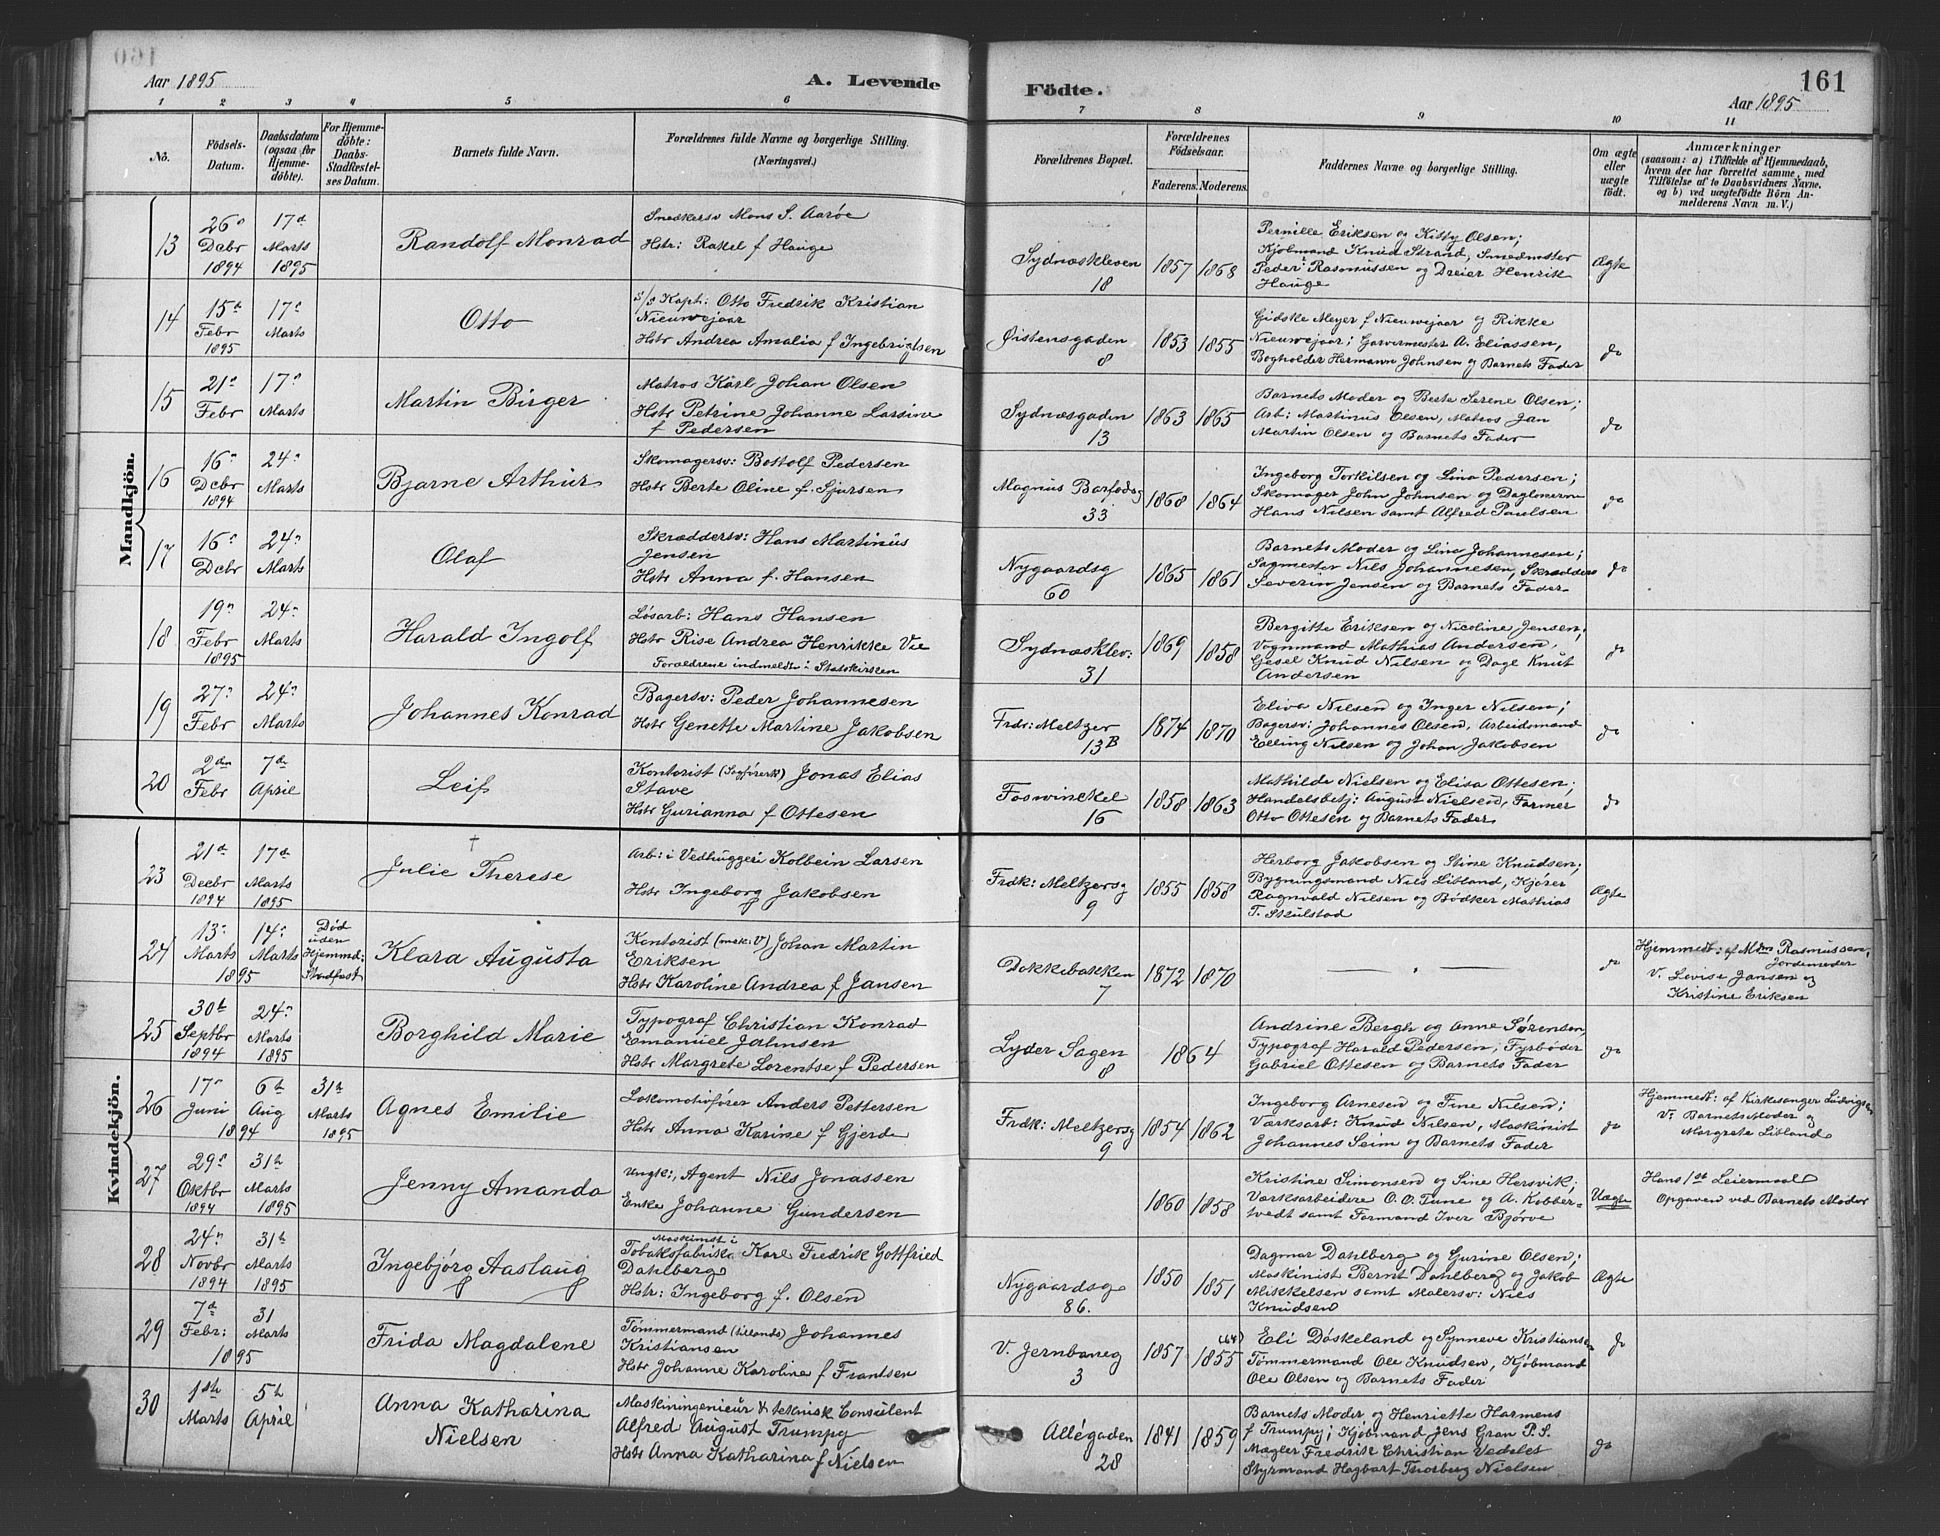 160
Aar 1895
A. Levende
Födte.
161
Aar 1895
1 2 3 4 5 6 7 8 9 10 11
No.
Födsels-
Datum.
Daabsdatum
(ogsaa for
Hjemme-
döbte).
For Hjemme-
döbte:
Daabs-
Stadfæstel-
ses Datum.
Barnets fulde Navn.
Forældrenes fulde Navne og borgerlige Stilling.
(Næringsvei.)
Forældrenes Bopæl.
Forældrenes
Födselsaar.
Faderens. Moderens.
Faddernes Navne og borgerlige Stilling.
Om ægte
eller
uægte
födt.
Anmærkninger
(saasom: a) i Tilfælde af Hjemmedaab,
hvem der har forrettet samme, med
Tilföielse af to Daabsvidners Navne,
og b) ved uægtefödte Börn An-
melderens Navn m. V.)
Mandkjön.
13
26
Decbr
1894
17d
Marts
1895
Randolf Monrad
Snedkersv Mons S. Aarøe
Hstr: Rakel f Hauge
Sydnæskleven
18
1857 1868
Pernille Eriksen og Kitty Olsen;
Kjøbmand Knud Strand, Smedmester
Peder Rasmussen og Dreier Henrik
Hauge
Ægte
14
15d
Febr
1895
17
Marts
Otto
S/S Kapt: Otto Fredrik Kristian
Nieuwejaar
Hstr Andrea Amalia f Ingebrigtsen
Øistensgaden
8
1853 1855
Gidske Meyer f Nieuwejaar og Rikke
Nieuwejaar; Garvermester A. Eliassen,
Bogholder Hermann Johnsen og Barnets Fader
do
15
21
Febr
17
Marts
Martin Birger
Matros Karl Johan Olsen
Hstr Petrine Johanne Larsine
f Pedersen
Sydnæsgaden
13
1863 1865
Barnets Moder og Berta Serene Olsen;
Arb: Martinus Olsen, Matros Jan
Martin Olsen og Barnets Fader
do
16
16
Dcbr
1894
24
Marts
Bjarne Arthur
Skomagersv: Bottolf Pedersen
Hstr Berte Oline f. Sjursen
Magnus Barfodsg
33
1868 1864
Ingeborg Torkilsen og Lina Pedersen;
Skomager John Johnsen og Daglönnern
Hans Nilsen samt Alfred Paulsen
do
17
16
Dcbr
24
Marts
Olaf
Skræddersv: Hans Martinus
Jensen
Hstr Anna f. Hansen
Nygaardsg
60
1865 1861
Barnets Moder og Lina Johannesen;
Sagmester Nils Johannesen, Skrædders
Severin Jensen og Barnets Fader
do
18
19
Febr
1895
24
Marts
Harald Ingolf
Løsarb: Hans Hansen
Hstr Rise Andrea Henrikke Vie
Forældrene indmeldt i Statskirken
Sydnæsklev:
31
1869 1858
Bergitte Eriksen og Nicoline Jensen;
Vognmand Mathias Andersen,
Gesel Knud Nilsen og Dagl Knut
Andersen
do
19
27
Febr
24
Marts
Johannes Konrad
Bagersv: Peder Johannesen
Hstr Genette Martine Jakobsen
Frdr: Meltzer
13B
1874 1870
Eliva Nielsen og Inger Nilsen;
Bagersv: Johannes Olsen, Arbeidsmand
Elling Nilsen og Johan Jakobsen
do
20
2den
Febr
7de
April
Leif
Kontorist (Sagførerk) Jonas Elias
Stave
Hstr Gurianna f Ottesen
Foswinckel
16
1858 1863
Mathilde Nielsen og Elisa Ottesen;
Handelsbetj: August Nielsen, Farmer
Otto Ottesen og Barnets Fader
do
Kvindekjön.
23
21d
Decbr
1894
17d
Marts
1895
†
Julie Therese
Arb: i Vedhuggeri Kolbein Larsen
Hstr Ingeborg Jakobsen
Frdk: Meltzersg
9
1855 1858
Herborg Jakobsen og Stine Knudsen;
Bygningsmand Nils Litland, Kjører
Ragnvald Nilsen og Bødker Mathias
T. Skulstad
Ægte
24
13
Marts
14
Marts
1895
Død
uden
Hjemmed:
Stadfast
Klara Augusta
Kontorist (mek: V) Johan Martin
Eriksen
Hstr Karoline Andrea f Jansen
Dokkebakken
7
1872 1870
— . —
do
Hjemmedt: af Mdm Rasmussen,
Jordemoder
V. Levise Jansen og
Kristine Eriksen
25
30t
Septbr
1894
24
Marts
1895
Borghild Marie
Typograf Christian Konrad
Emanuel Jahnsen
Hstr Margrete Lorentse f Pedersen
Lyder Sagen
8
1864
Andrine Bergh og Anne Sørensen
Typograf Harald Pedersen, Fyrbøder
Gabriel Ottesen og Barnets Fader
do
26
17
Juni
6t
Aug
1894
31t
Marts
1895
Agnes Emilie
Lokomotivfører Anders Pettersen
Hstr Anna Karine f Gjerde
Frdk: Meltzersg
9
1854 1862
Ingeborg Arnesen og Tine Nilsen;
Værksarb: Knud Nilsen, Maskinist
Johannes Seim og Barnets Fader
do
Hjemmedt: af Kirkesanger Ludvigsen
V: Barnets Moder og
Margrete Litland
27
29
Oktbr
1894
31t
Marts
1895
Jenny Amanda
Ungk:, Agent Nils Jonassen
Enke Johanne Gundersen
1860 1858
Kristine Simonsen og Sine Hersvik;
Værksarbeidere O. O. Tune og A. Kobber-
tvedt samt Formand Iver Bjørve
Uægte
Hans 1ste Leiermaal
Opgaven ved Barnets Moder
28
24
Novbr
1894
31t
Marts
1895
Ingebjørg Aaslaug
Maskinist i
Tobaksfabrik Karl Fredrik Gottfried
Dahlberg
Hstr: Ingeborg f. Olsen
Nygaardsg
86.
1850 1851
Dagmar Dahlberg og Gurine Olsen;
Maskinist Bernt Dahlberg og Jakob
Mikkelsen samt Malersv: Nils
Knudsen
Ægte
29
7d
Febr:
31
Marts
1895
Frida Magdalene
Tømmermand (tillands) Johannes
Kristiansen
Hstr Johanne Karoline f Frantsen
V. Jernbaneg
3
1857 (64) 1855
Eli Døskeland og Synneve Kristiansen
Tømmermand Ole Knudsen, Kjøbmand
Ole Olsen og Barnets Fader
do
30
1ste
Marts
5t
April
Anna Katharina
Nielsen
Maskiningenieur & teknisk Consulent
Alfred August Trumpy
Hstr Anna Katharina f Nielsen
Allégaden
28
1841 1859
Barnets Moder og Henriette Harmens
f Trumpy; Kjøbmand Jens Gran P. S.
Mægler Fredrik Christian Vedeler
Styrmand Hagbart Thorberg Nielsen
do